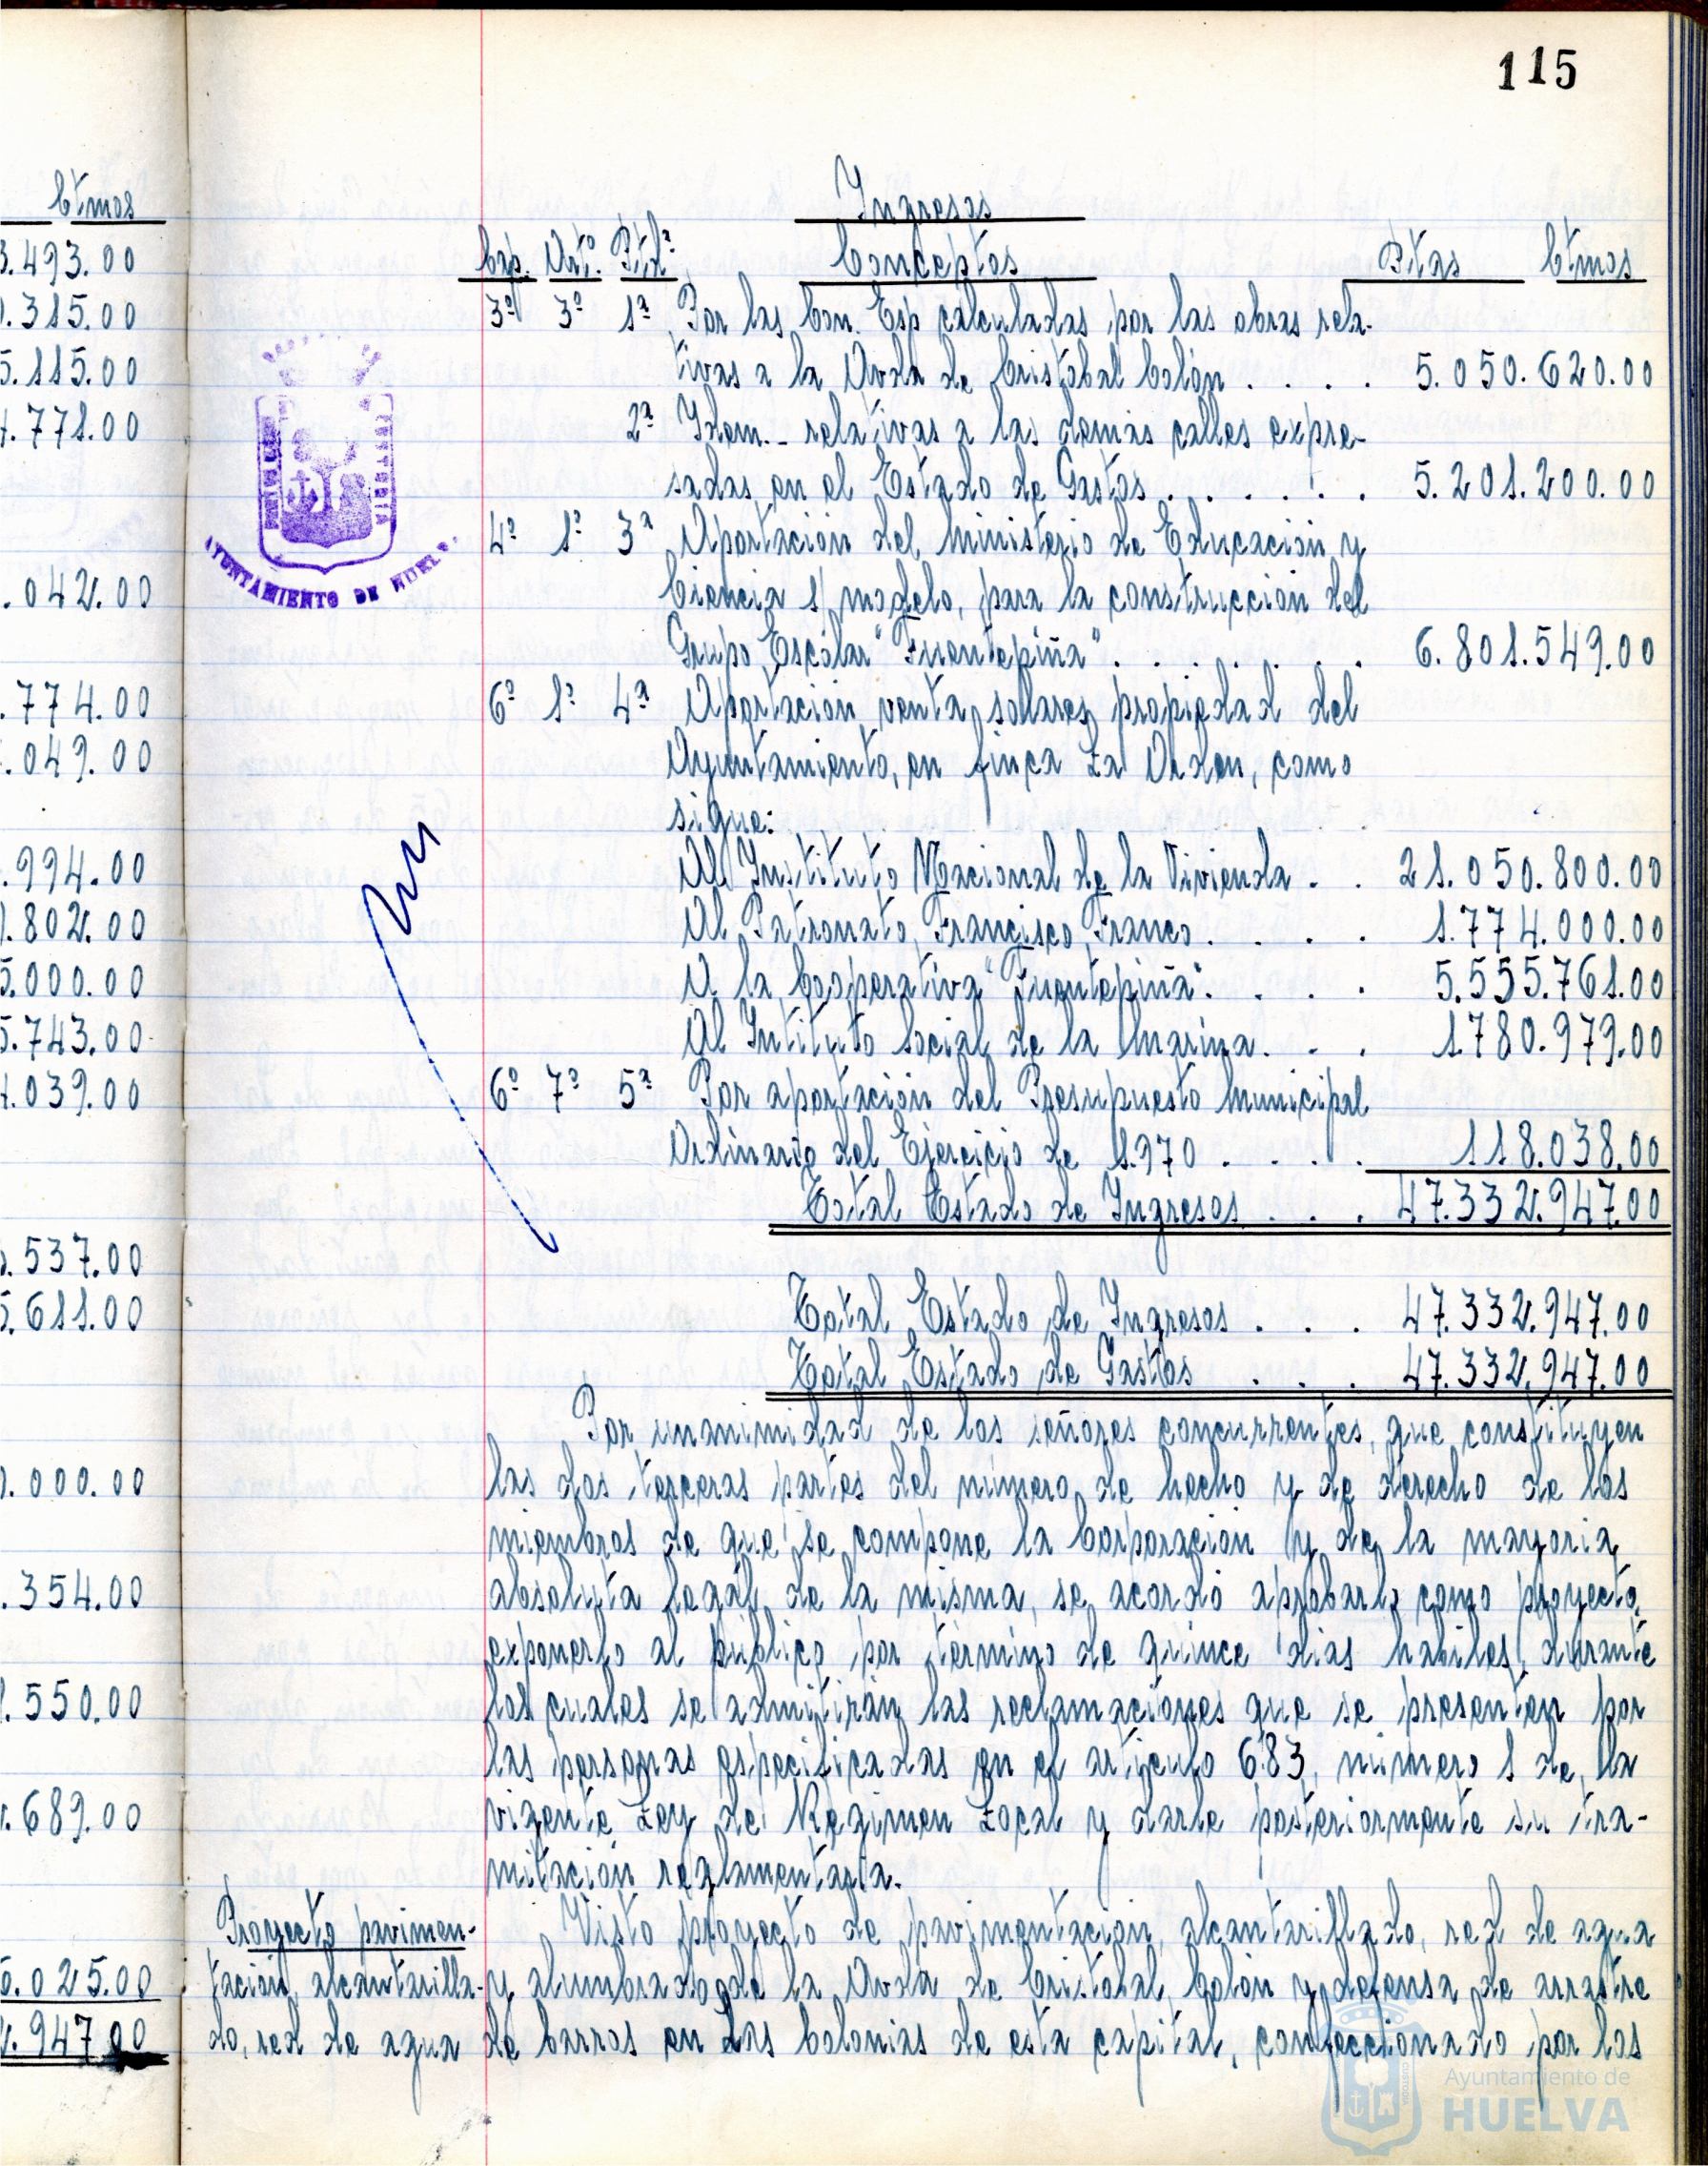 115
Ctmos
3.493.00
.315.00
5.115.00
.771.00
.042.00
.774.00
.049.00
.994.00
.802.00
5.000.00
5.743.00
.039.00
.537.00
5.611.00
.000.00
.354.00
.550.00
.689.00
.025.00
.947.00
AYUNTAMIENTO DE HUELVA
Ingresos
Cap. Artº. Ptdª. Conceptos Ptas Ctmos
3º 3º 1ª Por las Con. Esp calculadas por las obras rela-
tivas a la Avda de Cristóbal Colón . . . . 5.050.620.00
2ª Idem.- relativas a las demás calles expre-
sadas en el Estado de Gastos . . . . . . 5.201.200.00
4º 1º 3ª Aportación del Ministerio de Educación y
Ciencia s/ modelo, para la construcción del
Grupo Escolar "Fuentepiña" . . . . . . . 6.801.549.00
6º 1º 4ª Aportación venta solares propiedad del
Ayuntamiento, en finca La Orden, como
sigue:
Al Instituto Nacional de la Vivienda . . 21.050.800.00
Al Patronato Francisco Franco . . . . 1.774.000.00
A la Cooperativa "Fuentepiña" . . . . 5.555.761.00
Al Intituto Social de la Marina . . . 1.780.979.00
6º 7º 5ª Por aportación del Presupuesto Municipal
Ordinario del Ejercicio de 1.970 . . . . 118.038.00
Total Estado de Ingresos . . . 47.332.947.00
Total Estado de Ingresos . . . 47.332.947.00
Total Estado de Gastos . . . 47.332.947.00
Por unanimidad de los señores concurrentes, que constituyen
las dos terceras partes del número de hecho y de derecho de los
miembros de que se compone la Corporación y de la mayoria
absoluta legal de la misma, se acordó aprobarlo como proyecto,
exponerlo al público por término de quince dias habiles, durante
los cuales se admitirán las reclamaciones que se presenten por
las personas especificadas en el artículo 683, número 1 de la
vigente Ley de Regimen Local y darle posteriormente su tra-
mitación reglamentaria.
Proyecto pavimen-
tación, alcantarilla-
do, red de agua
Visto proyecto de pavimentación, alcantarillado, red de agua
y alumbrado de la Avda de Cristobal Colón y defensa de arrastre
de barros en las Colonias de esta capital, confeccionado por los
Ayuntamiento de
HUELVA